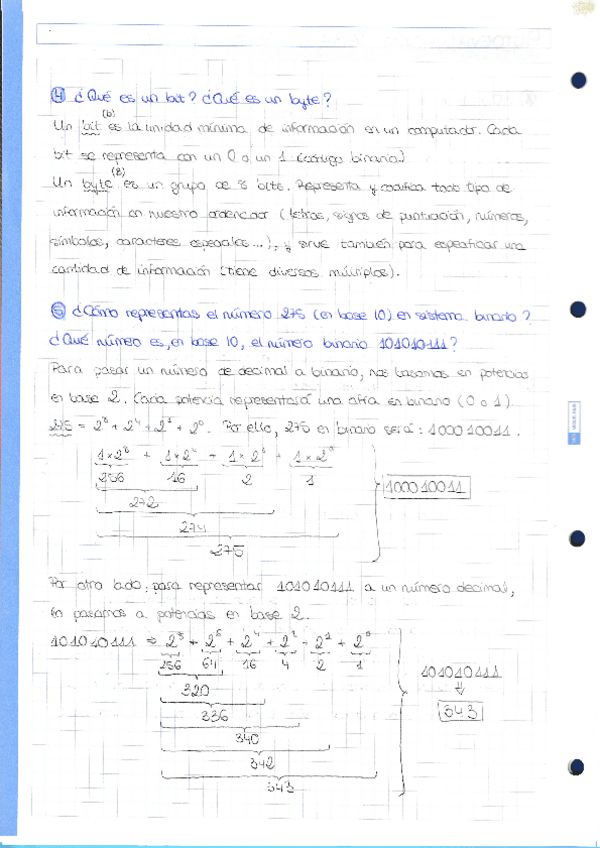 ④ ¿Qué es un bit? ¿Qué es un byte?
(b)
Un bit es la unidad mínima de información en un computador. Cada
bit se representa con un 0 o un 1 (código binario)
(B)
Un byte es un grupo de 8 bits. Representa y codifica todo tipo de
información en nuestro ordenador (letras, signos de puntuación, números,
símbolos, caracteres especiales...), y sirve también para especificar una
cantidad de información (tiene diversos múltiplos).
⑤ ¿Cómo representas el número 275 (en base 10) en sistema binario?
¿Qué número es, en base 10, el número binario 101010111?
Para pasar un número de decimal a binario, nos basamos en potencias
en base 2. Cada potencia representará una cifra en binario (0 o 1).
275 = 2⁸ + 2⁴ + 2¹ + 2⁰. Por ello, 275 en binario será: 100010011.
1×2⁸ + 1×2⁴ + 1×2¹ + 1×2⁰
256 16 2 1
100010011
272
274
275
Por otro lado, para representar 101010111 a un número decimal,
lo pasamos a potencias en base 2.
101010111 ⇒ 2⁸ + 2⁶ + 2⁴ + 2² + 2¹ + 2⁰
256 64 16 4 2 1
101010111
⇓
320
343
336
340
342
343